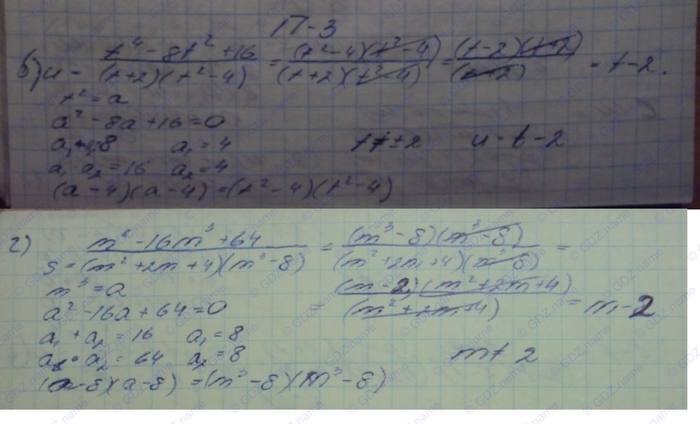 17-3
б) u = t⁴-8t²+16 / (t+2)(t²-4) = (t²-4)(t²-4) / (t+2)(t²-4) = (t-2)(t+2) / (t+2) = t-2.
t² = a
a²-8a+16=0
a₁+a₂=8 a₁=4
a₁ a₂=16 a₂=4
t≠±2 u-t-2
(a-4)(a-4)=(t²-4)(t²-4)
г) s = m⁶-16m³+64 / (m²+2m+4)(m³-8) = (m³-8)(m³-8) / (m²+2m+4)(m³-8) =
= (m-2)(m²+2m+4) / (m²+2m+4) = m-2
m³=a
a²-16a+64=0
a₁+a₂=16 a₁=8
a₁·a₂=64 a₂=8
m≠2
(a-8)(a-8)=(m³-8)(m³-8)